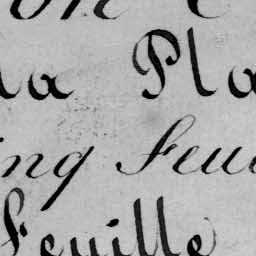 on
la Pla
ing Feui
Feuille